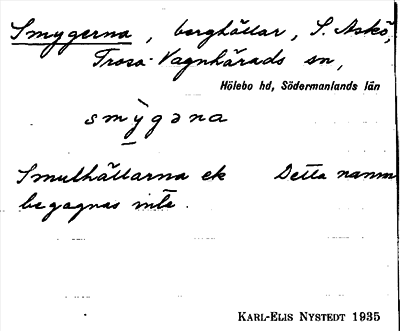 Smygerna, berghällar, S. Askö,
Trosa-Vagnhärads sn,
Hölebo hd, Södermanlands län
smỳgəna
Smulhällarna ek Detta namn
begagnas inte.
KARL-ELIS NYSTEDT 1935